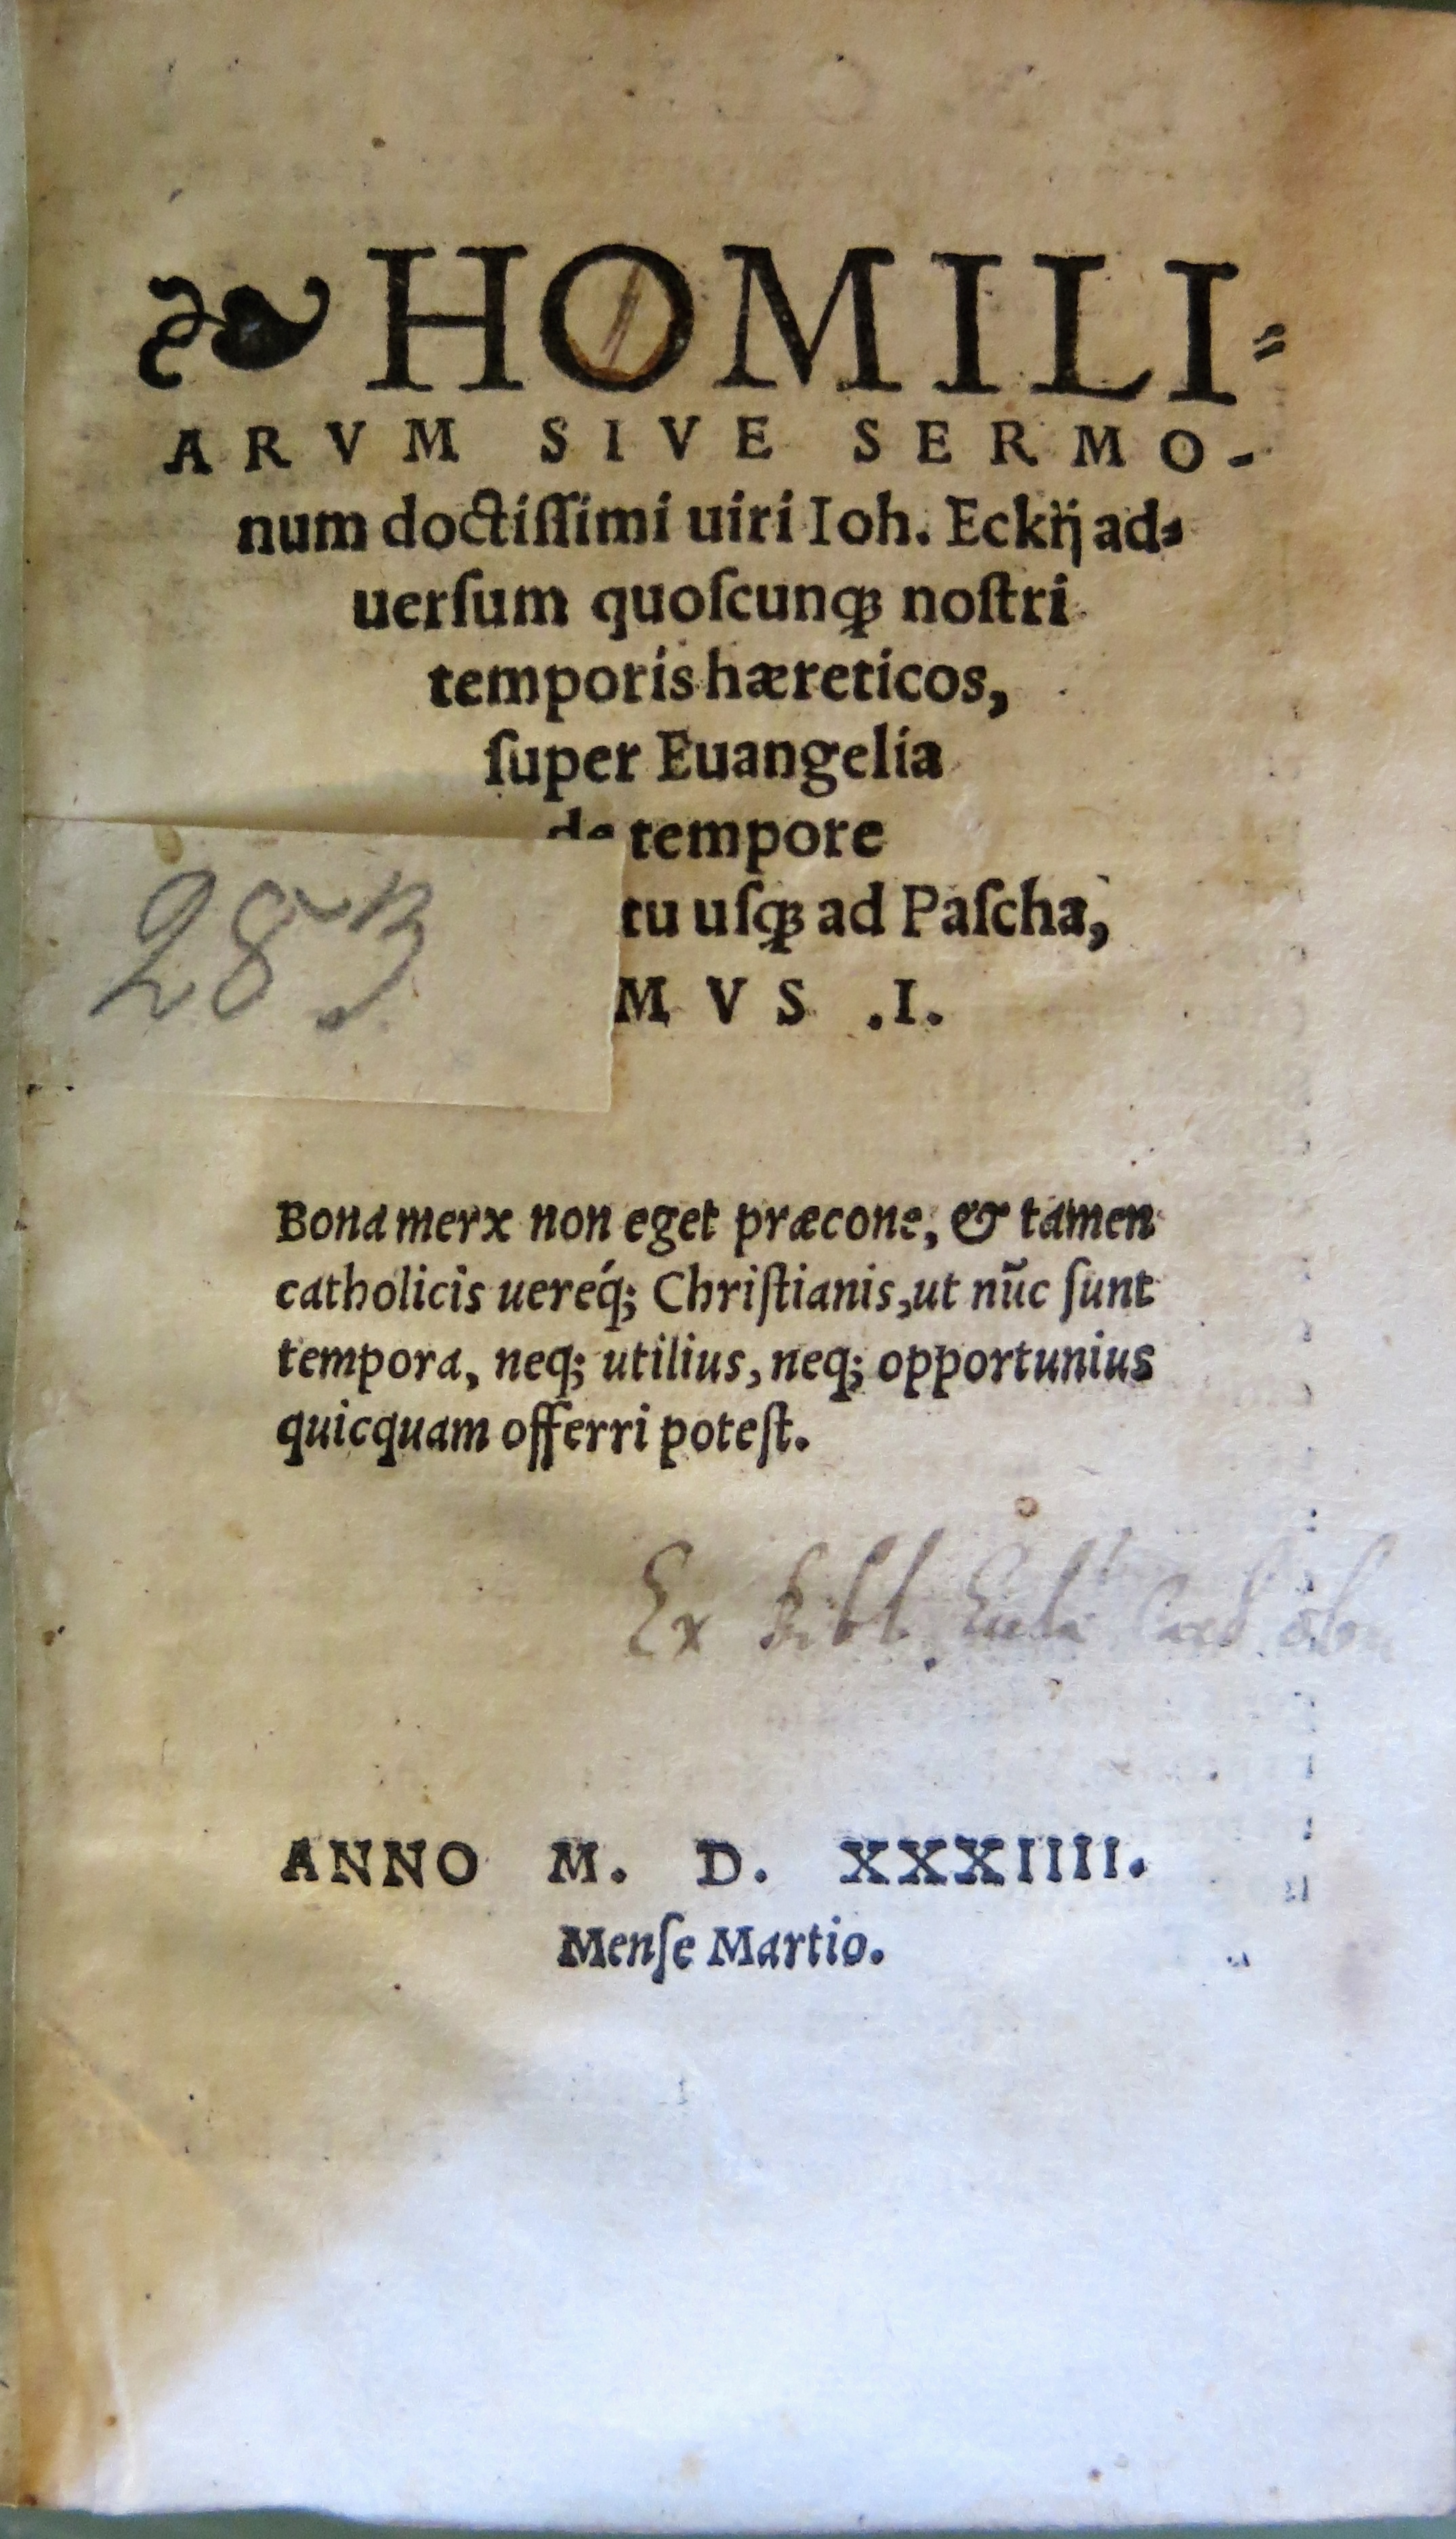 ❧ HOMILI=
ARVM SIVE SERMO-
num doctiſſimi uiri Ioh. Eckij ad=
uerſum quoſcunqꝫ noſtri
temporis hæreticos,
ſuper Euangelia
de tempore
tu uſqꝫ ad Paſcha,
MVS .I.
283
Bona merx non eget præcone, & tamen
catholicis uereq́; Chriſtianis, ut nūc ſunt
tempora, neq; utilius, neq; opportunius
quicquam offerri poteſt.
Ex Bibl.
ANNO M. D. XXXIIII.
Menſe Martio.